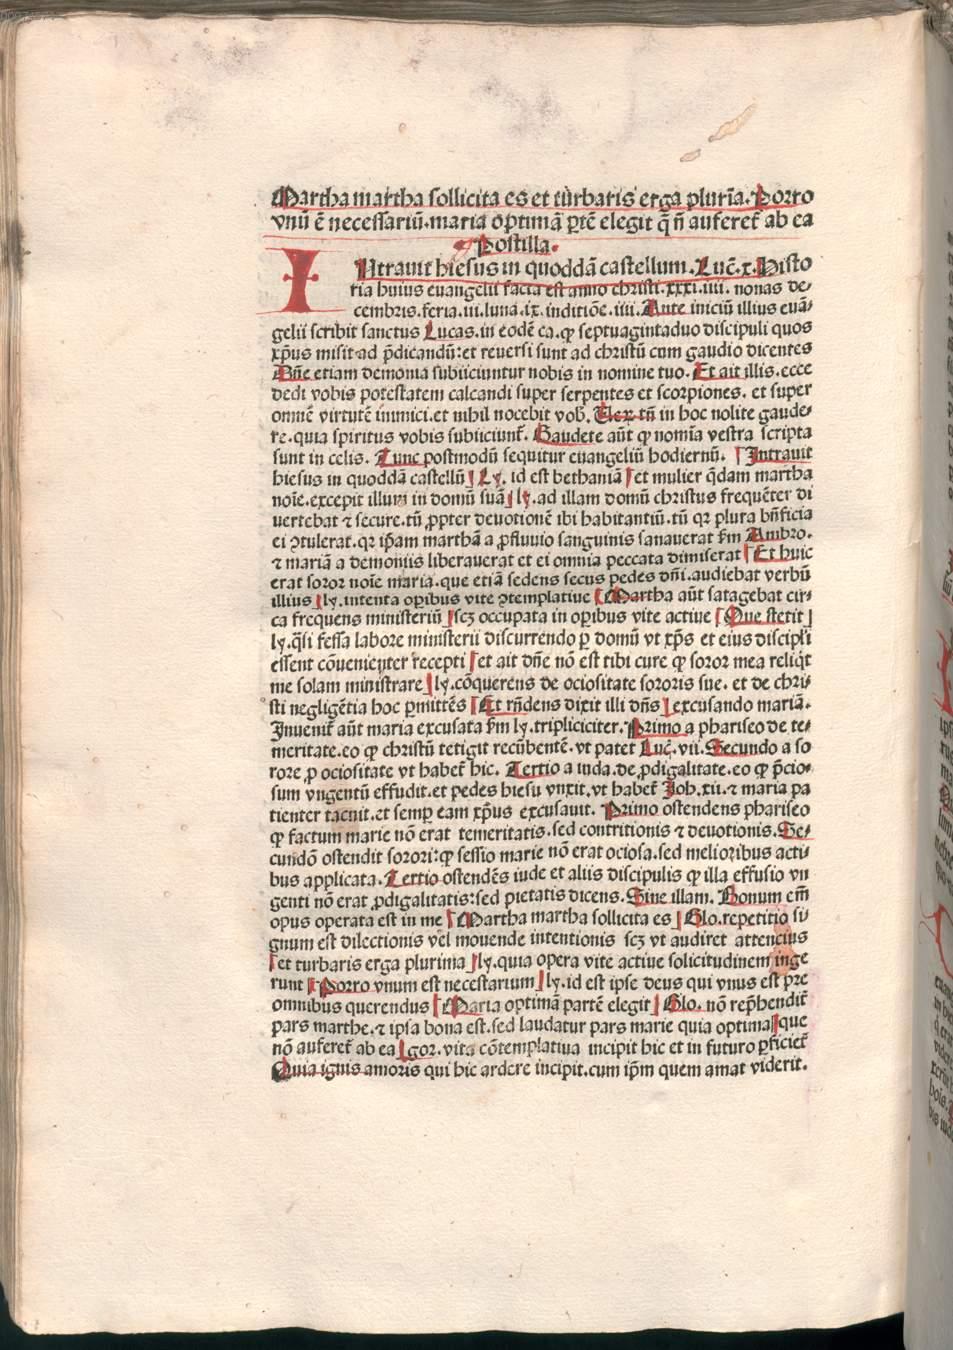 Martha martha sollicita es et turbaris erga plurīa. Porro
vnū ē necessariū. maria optimā ꝑtē elegit q̄ ñ auferet̄ ab ea
Postilla.
INtrauit hiesus in quoddā castellum. Luc̄. x. Histo
ria huius euangelii facta est anno christi. xxxi. iiii. nonas de⸗
cembris. feria. iii. luna. ix. inditiōe. iiii. Ante iniciū illius euā⸗
gelii scribit sanctus Lucas. in eodē ca. ꝙ septuagintaduo discipuli quos
xp̄us misit ad p̄dicandū: et reuersi sunt ad christū cum gaudio dicentes
Dn̄e etiam demonia subiiciuntur nobis in nomine tuo. Et ait illis. ecce
dedi vobis potestatem calcandi super serpentes et scorpiones. et super
omnē virtutē inimici. et nihil nocebit vob̄. tn̄ in hoc nolite gaude⸗
re. quia spiritus vobis subiiciunt̄. Gaudete aūt ꝙ nomīa vestra scripta
sunt in celis. Tunc postmodū sequitur euangeliū hodiernū. Intrauit
hiesus in quoddā castellū Ly. id est bethaniā et mulier q̄dam martha
noīe. excepit illum in domū suā ly. ad illam domū christus frequēter di
uertebat ⁊ secure. tū ꝓpter deuotionē ibi habitantiū. tū qꝛ plura bn̄ficia
ei ꝯtulerat. qꝛ ip̄am marthā a ꝓfluuio sanguinis sanauerat f̄m Ambro.
⁊ mariā a demoniis liberauerat et ei omnia peccata dimiserat Et huic
erat soror noīe maria. que etiā sedens secus pedes dn̄i. audiebat verbū
illius ly. intenta oꝑibus vite ꝯtemplatiue Martha aūt satagebat cir⸗
ca frequens ministeriū scꝫ occupata in oꝑibus vite actiue Que stetit
ly. q̄si fessa labore ministerii discurrendo ꝑ domū vt xp̄s et eius discipl̄i
essent cōuenienter recepti et ait dn̄e nō est tibi cure ꝙ soror mea reliq̄t
me solam ministrare ly. cōquerens de ociositate sororis sue. et de chri⸗
sti negligētia hoc ꝑmittēs Et rn̄dens dixit illi dn̄s excusando mariā.
Inuenit̄ aūt maria excusata f̄m ly. tripliciciter. Primo a phariseo de te⸗
meritate. eo ꝙ christū tetigit recūbentē. vt patet Luc̄. vii. Secundo a so
rore ꝓ ociositate vt habet̄ hic. Tertio a iuda. de ꝓdigalitate. eo ꝙ p̄cio⸗
sum vngentū effudit. et pedes hiesu vnxit. vt habet̄ Joh. xii. ⁊ maria pa
tienter tacuit. et semꝑ eam xp̄us excusauit. Primo ostendens phariseo
ꝙ factum marie nō erat temeritatis. sed contritionis ⁊ deuotionis. Se⸗
cundō ostendit sorori: ꝙ sessio marie nō erat ociosa. sed melioribus acti⸗
bus applicata. Tertio ostendēs iude et aliis discipulis ꝙ illa effusio vn
genti nō erat ꝓdigalitatis: sed pietatis dicens. Sine illam. Bonum em̄
opus operata est in me Martha martha sollicita es Glo. repetitio si
gnum est dilectionis vel mouende intentionis scꝫ vt audiret attencius
et turbaris erga plurima ly. quia opera vite actiue solicitudinem inge
runt Porro vnum est necestarium ly. id est ipse deus qui vnus est pre
omnibus querendus Maria optimā partē elegit Glo. nō rep̄hendit̄
pars marthe. ⁊ ipsa bona est. sed laudatur pars marie quia optima que
nō auferet̄ ab ea gor. vita cōtemplatiua incipit hic et in futuro ꝑficiet̄
Quia ignis amoris qui hic ardere incipit. cum ip̄m quem amat viderit.